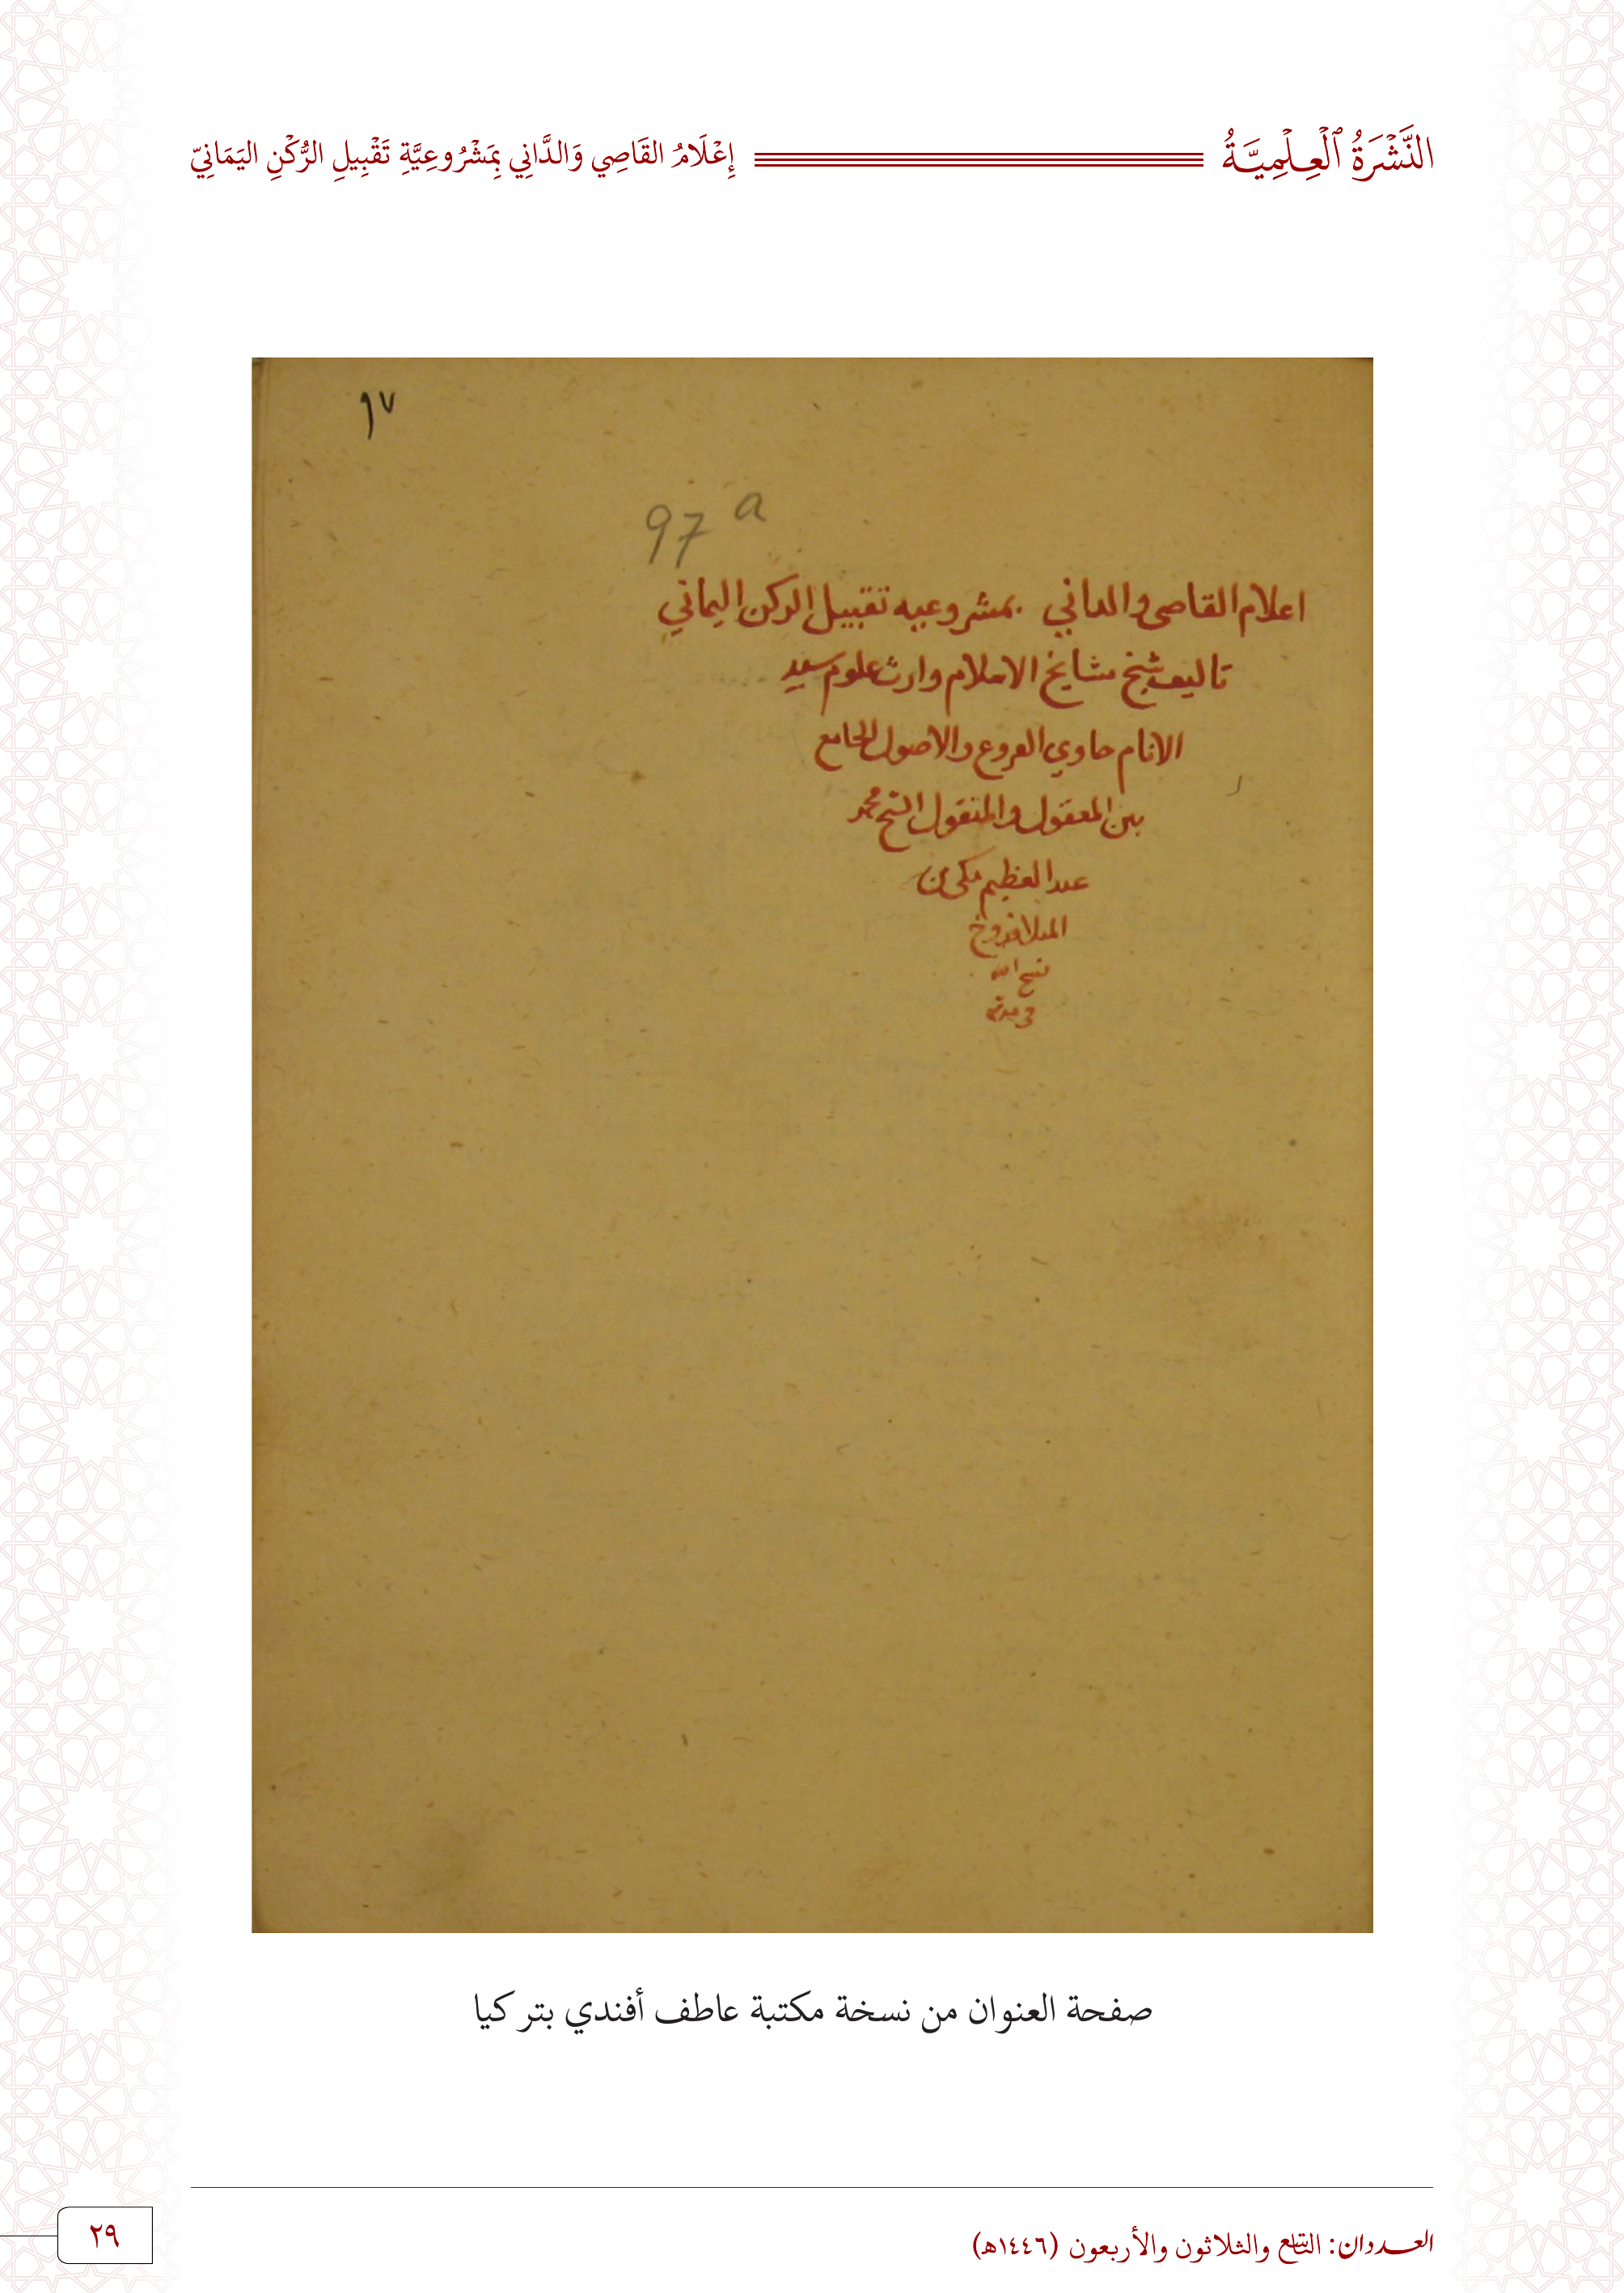 النَّشْرَةُ ٱلْعِلْمِيَّةُ
إِعْلَامُ القَاصِي وَالدَّانِي بِمَشْرُوعِيَّةِ تَقْبِيلِ الرُّكْنِ اليَمَانِيّ
٩٧
97 a
اعلام القاصى والدانى بمشروعيه تقبيل الركن اليماني
تاليف شيخ مشايخ الاسلام وارث علوم سيد
الانام حاوي الفروع والاصول الجامع
بين المعقول والمنقول الشيخ محمد
عبد العظيم مكى بن
الملا فروخ
فسح الله
فى مدته
صفحة العنوان من نسخة مكتبة عاطف أفندي بتركيا
العددان: التاسع والثلاثون والأربعون (١٤٤٦هـ)
٢٩